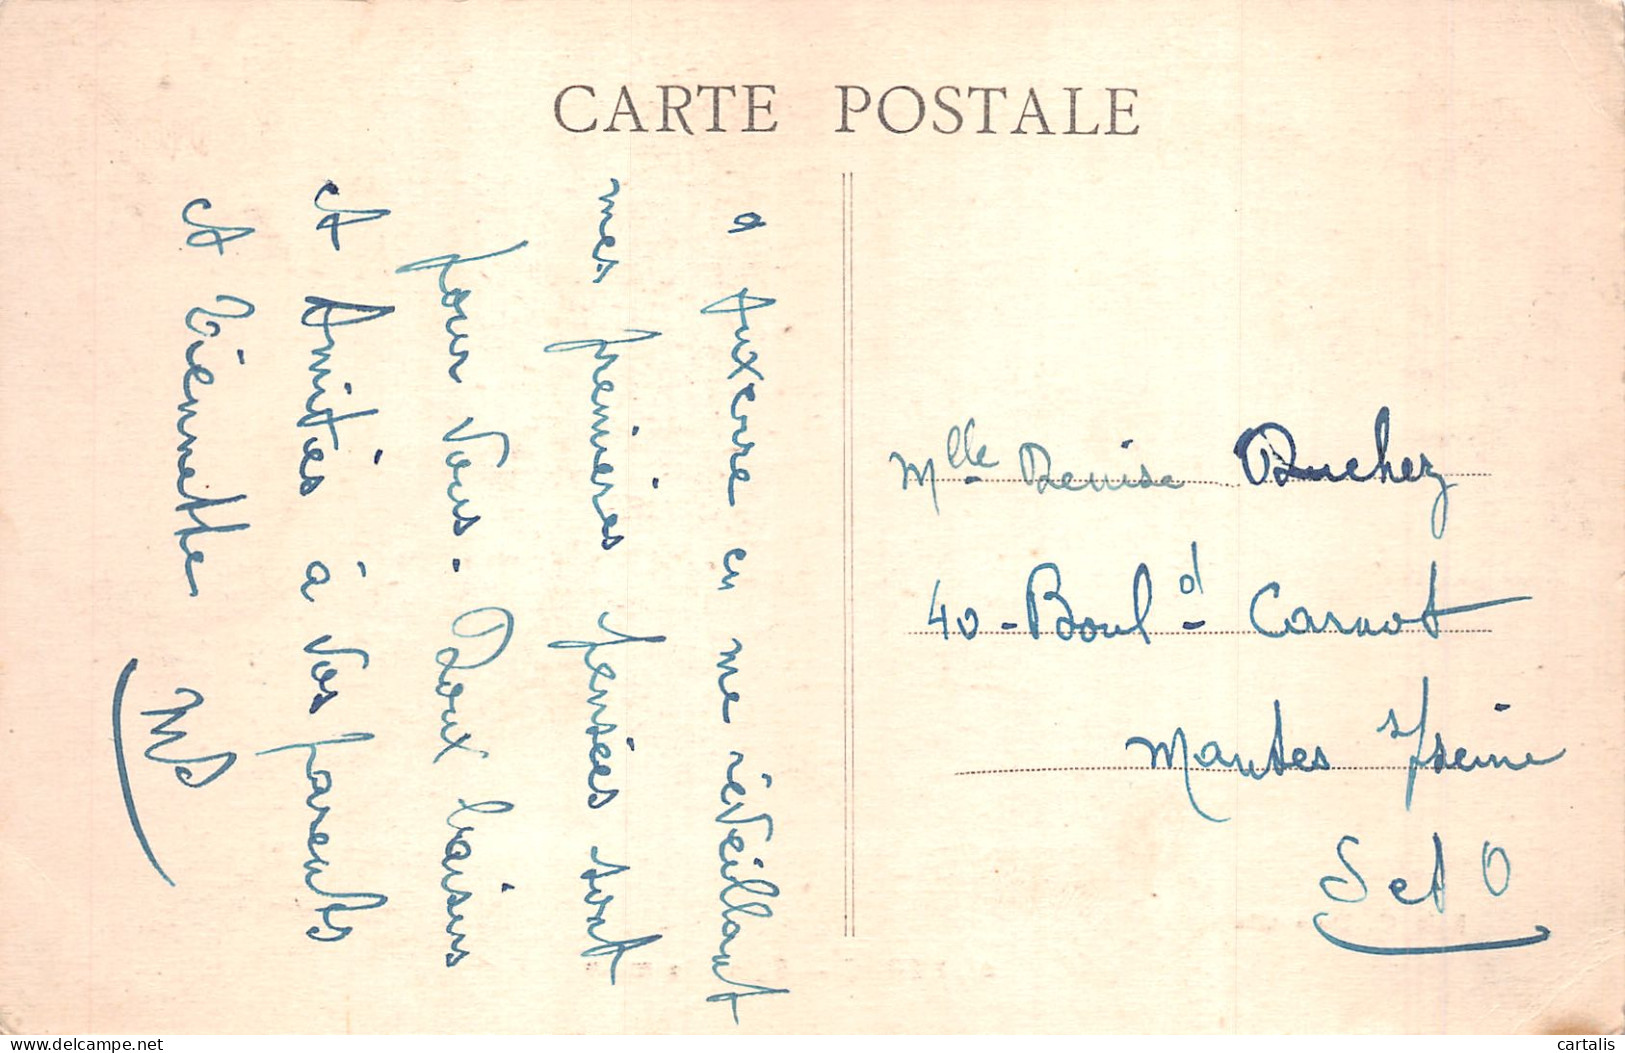 CARTE POSTALE
a Auxerre en me réveillant
mes premières pensées sont
pour vous. Doux baisers
et Amitiés à vos parents
et Tiennette
Mlle Denise Buchez
40 - Boul d - Carnot
Mantes s/seine
S et O
cartalis